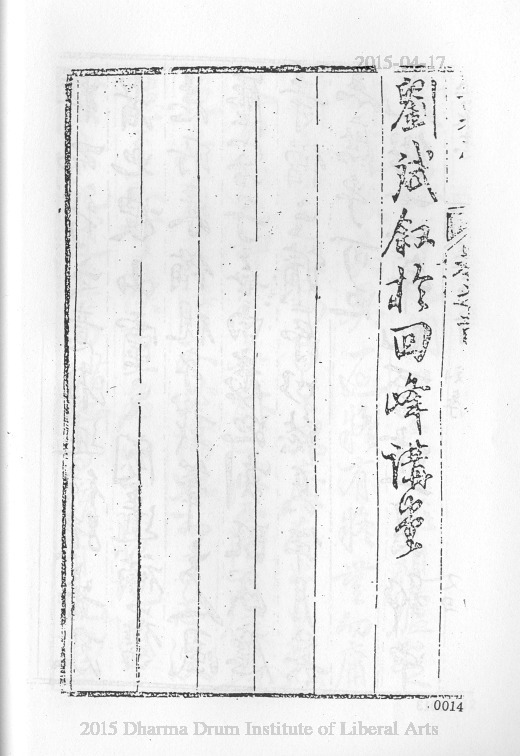 2015-04-17
劉斌叙於回峰講堂
0014
2015 Dharma Drum Institute of Liberal Arts